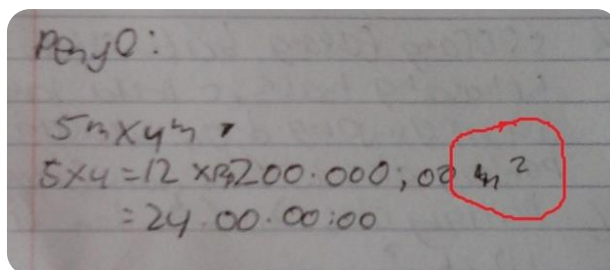 Peny0:
5m x 4m
5 x 4 = 12 x Rp 200.000,00 m²
= 24.00.00:00